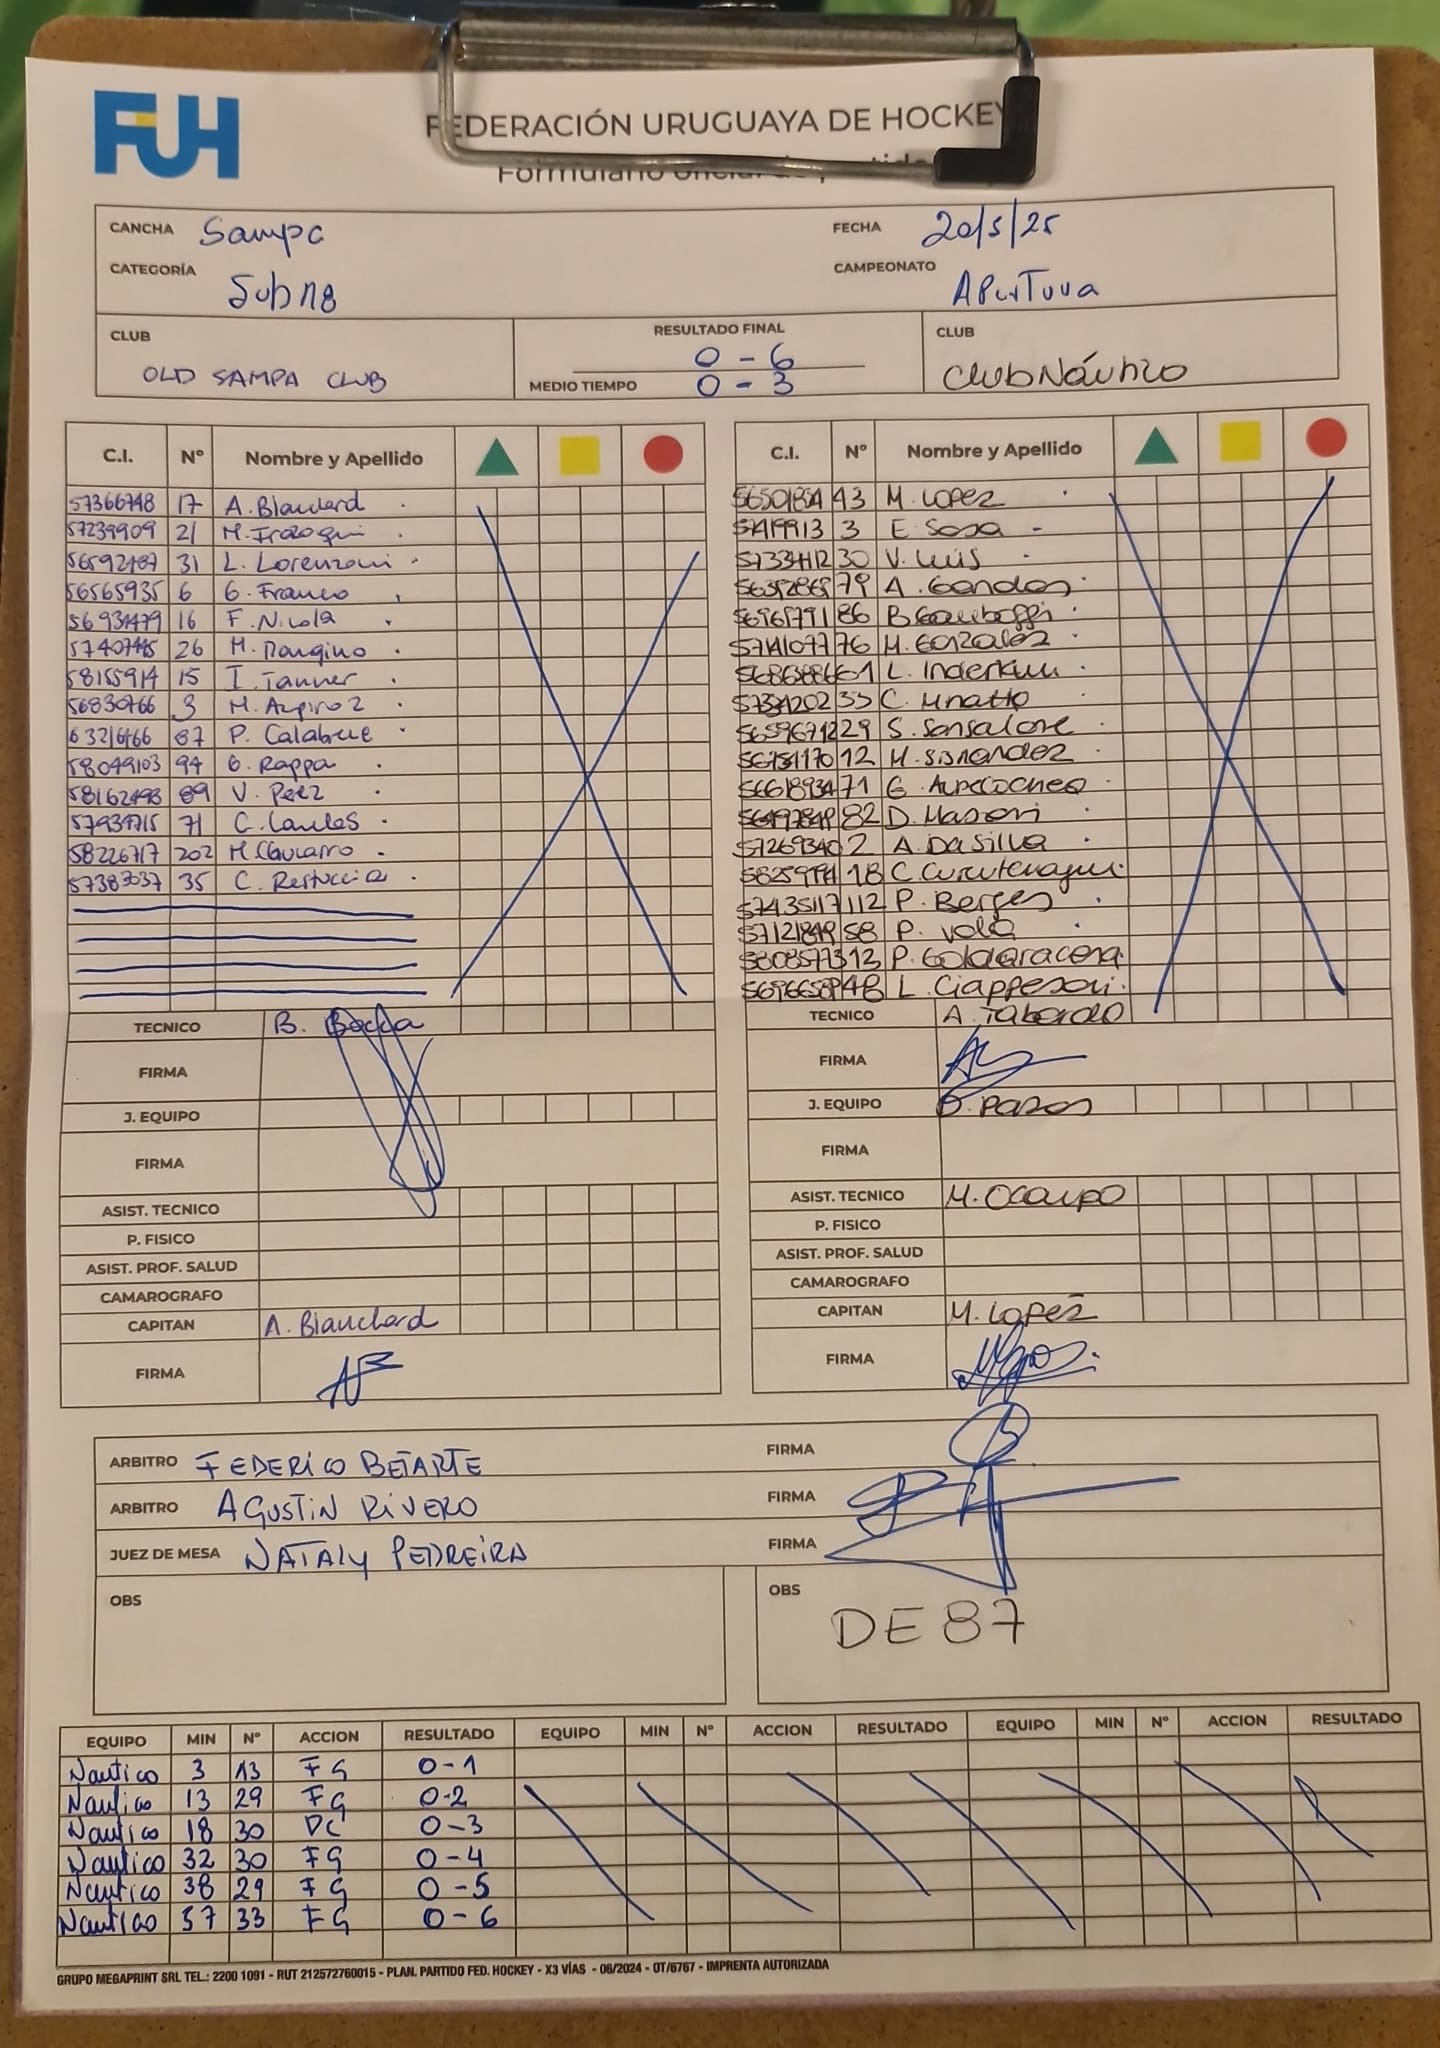 FUH
FEDERACIÓN URUGUAYA DE HOCKEY
Formulario oficial de partido
CANCHA Sampa
FECHA 20/5/25
CATEGORÍA Sub 18
CAMPEONATO Apertura
CLUB OLD SAMPA CLUB
RESULTADO FINAL 0 - 6
MEDIO TIEMPO 0 - 3
CLUB Club Náutico
C.I. Nº Nombre y Apellido
57366748 17 A. Blanchard
57239909 21 M. Irazoqui
56592487 31 L. Lorenzoni
56565935 6 G. Franco
56934479 16 F. Nicola
57407445 26 M. Mangino
58155914 15 I. Tanner
56830766 3 M. Aspiroz
63216166 87 P. Calabrue
58049103 94 G. Rappa
58162498 89 V. Perez
57934715 71 C. Laules
58226717 202 M.
57387037 35 C. Restuccia
TECNICO B.
FIRMA
J. EQUIPO
FIRMA
ASIST. TECNICO
P. FISICO
ASIST. PROF. SALUD
CAMAROGRAFO
CAPITAN A. Blanchard
FIRMA
C.I. Nº Nombre y Apellido
56501854 43 M. LOPEZ
57419913 3 E. Sosa
57334412 30 V. Luis
56352869 79 A. Gandos
56965791 86 B. Gambogi
57410777 76 M. Gonzalez
61 L. Inderkum
57334202 33 C. Minatto
56596712 29 S. Sansalone
56751170 12 M. Sisnandez
56618934 71 G.
56497849 82 D. Masoni
57269340 2 A. Da Silva
18 C. Curutchague
57435117 112 P. Berges
57121849 58 P. Vola
58085773 13 P. Goldaracena
56966589 48 L. Ciappesoni
TECNICO A. Tabordo
FIRMA
J. EQUIPO Pazos
FIRMA
ASIST. TECNICO M. Ocampo
P. FISICO
ASIST. PROF. SALUD
CAMAROGRAFO
CAPITAN M. Lopez
FIRMA
ARBITRO FEDERICO BETARTE FIRMA
ARBITRO AGUSTIN RIVERO FIRMA
JUEZ DE MESA NATALY PEDREIRA FIRMA
OBS
OBS DE 87
EQUIPO MIN Nº ACCION RESULTADO EQUIPO MIN Nº ACCION RESULTADO EQUIPO MIN Nº ACCION RESULTADO
Nautico 3 13 FG 0-1
Nautico 13 29 FG 0-2
Nautico 18 30 DC 0-3
Nautico 32 30 FG 0-4
Nautico 38 29 FG 0-5
Nautico 57 33 FG 0-6
GRUPO MEGAPRINT SRL TEL.: 2200 1091 - RUT 212572760015 - PLAN. PARTIDO FED. HOCKEY - X3 VÍAS - 06/2024 - OT/6767 - IMPRENTA AUTORIZADA